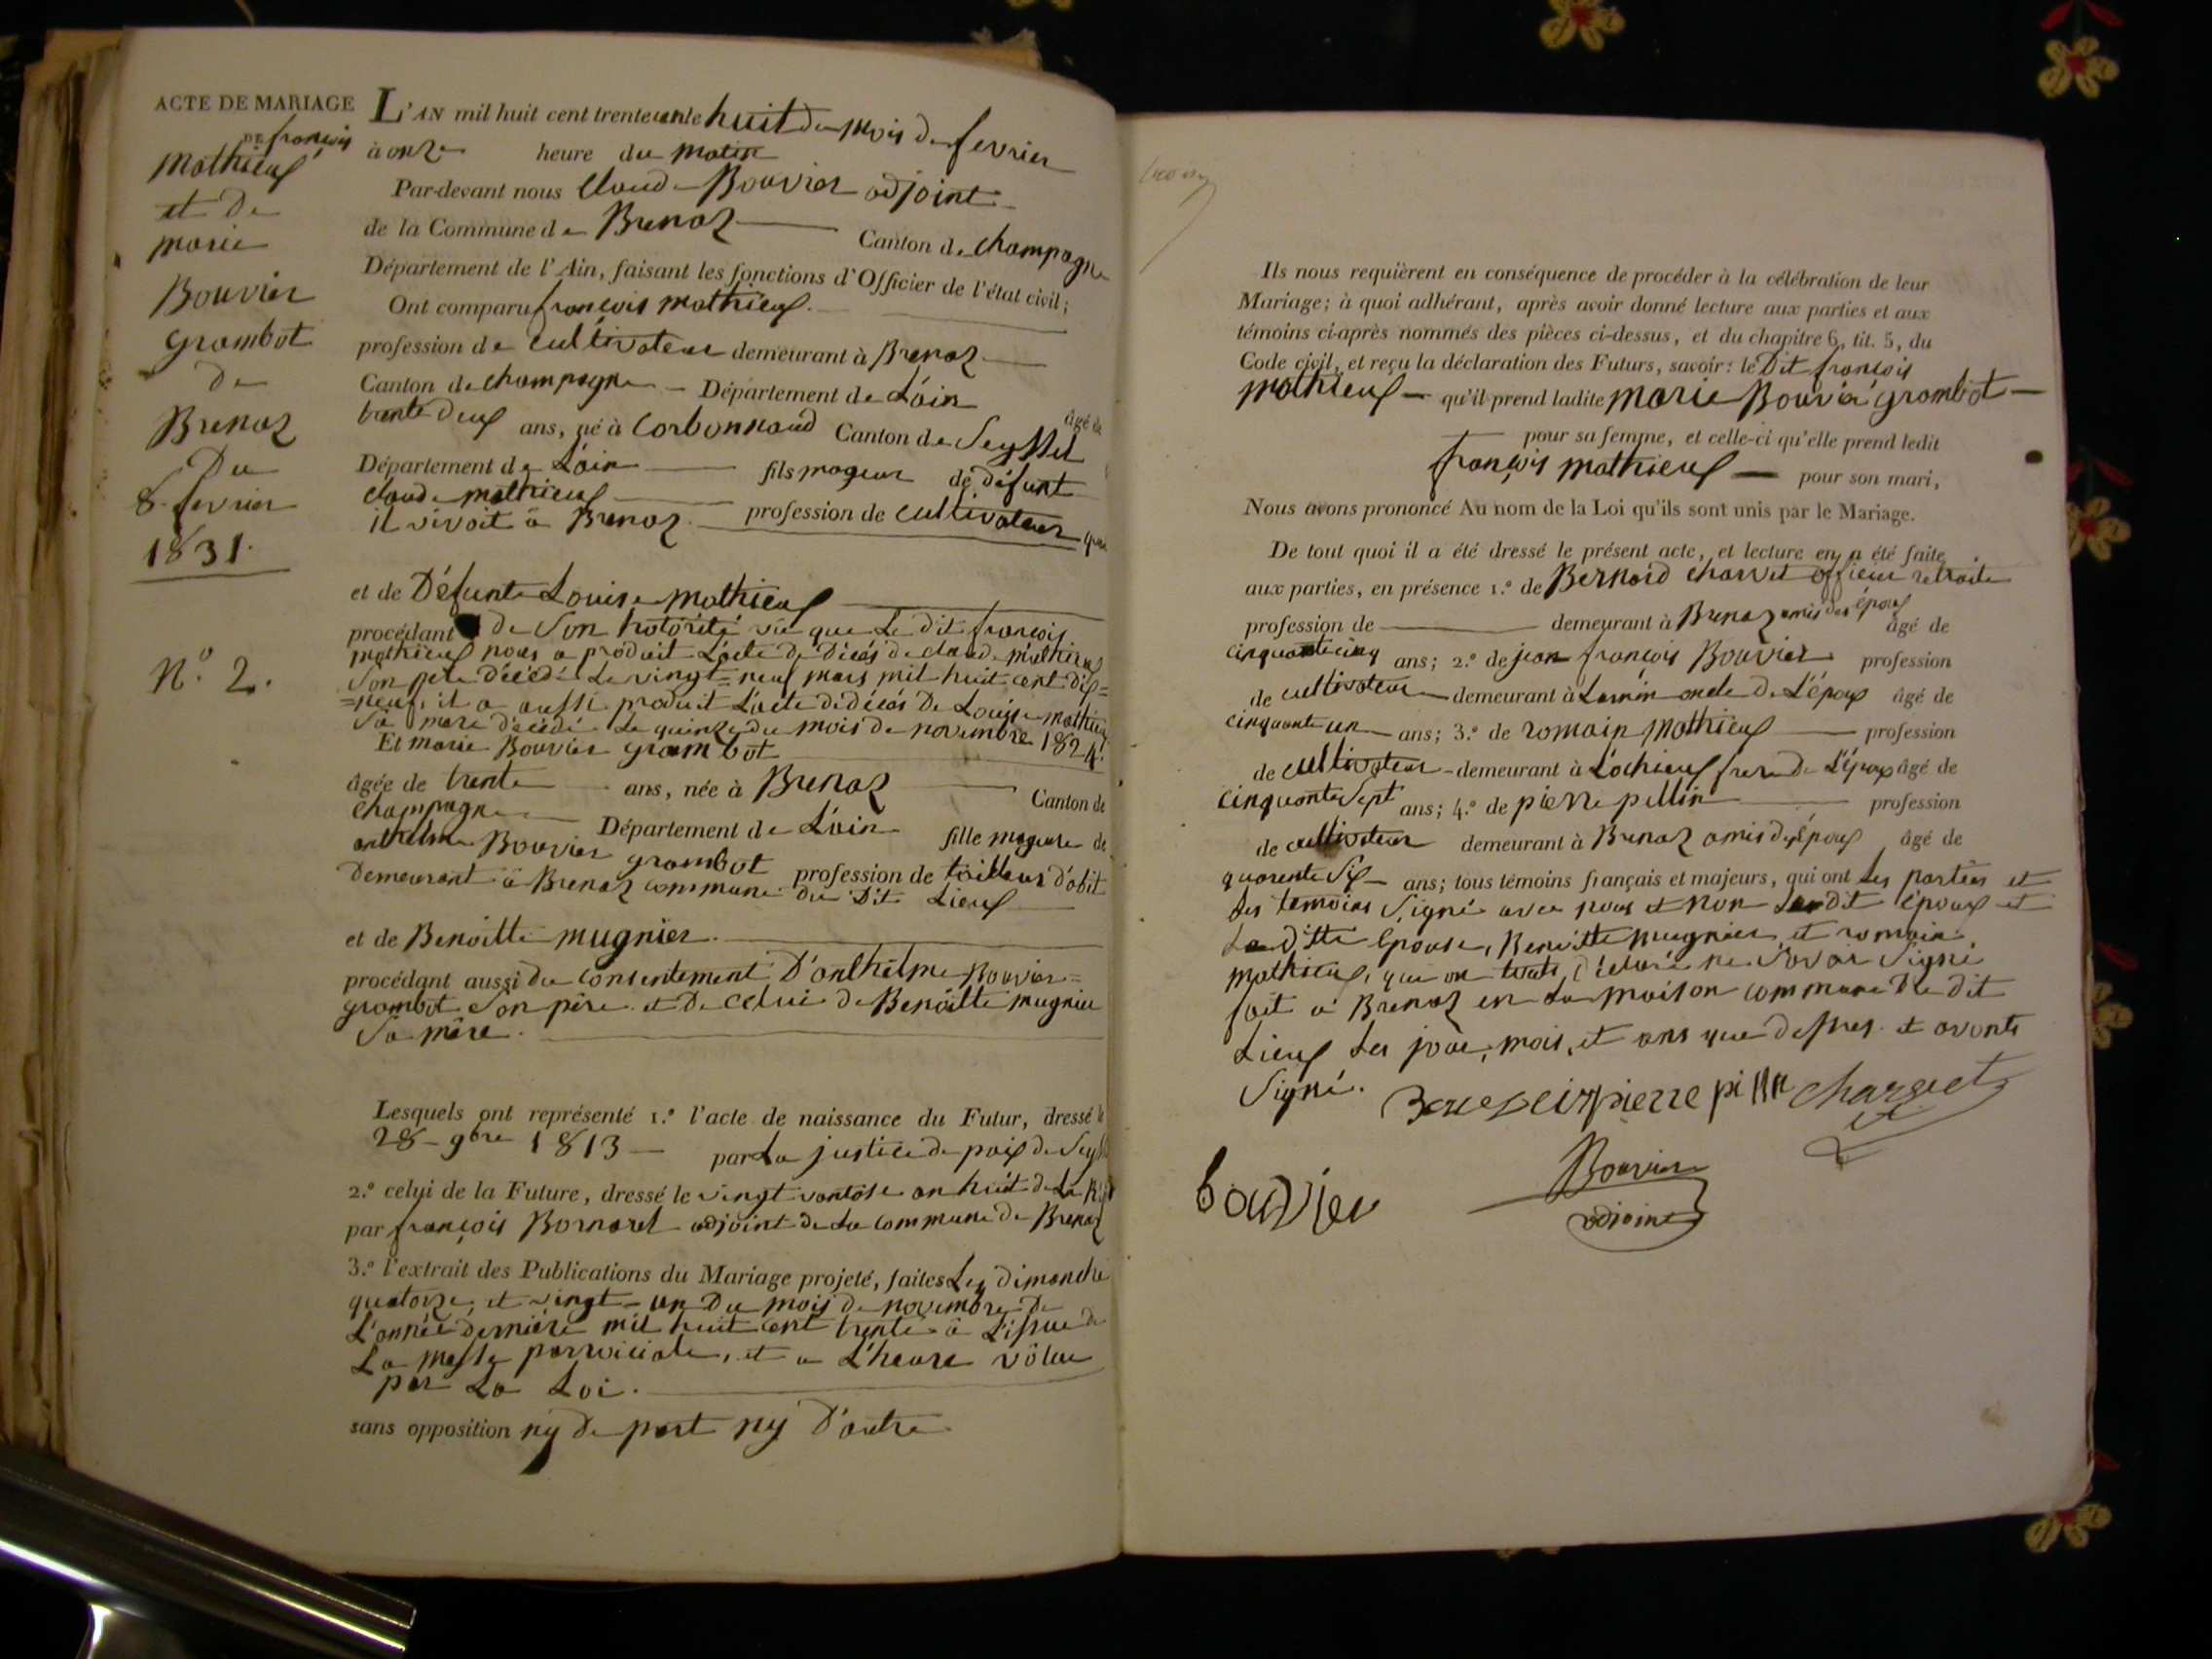 ACTE DE MARIAGE
DE françois
mathieux
et De
marie
Bouvier
grombot
De
Brenaz
Du
8 fevrier
1831.
N.º 2.
L'AN mil huit cent trente un le huit du mois de fevrier
à onze heure du matin
Par-devant nous Claude Bouvier adjoint
de la Commune de Brenaz Canton de champagne
Département de l'Ain, faisant les fonctions d'Officier de l'état civil;
Ont comparu françois mathieux.
profession de cultivateur demeurant à Brenaz
Canton de champagne Département de L'ain âgé de
trente deux ans, né à Corbonnaud Canton de Seyssel
Département de L'ain fils mageur de défunt
claude mathieux profession de cultivateur quan
il vivoit à Brenaz
et de Défunte Louise mathieux
procédant de Son notorieté vu que Le dit françois
mathieux nous a produit L'acte De Décés de claude mathieux
Son pere décédé Le vingt-neuf mars mil huit cent dix=
=neuf, il a aussi produit L'acte de décés De Louise mathieux
Sa mere décédé Le quinze du mois de novembre 1824.
Et marie Bouvier grombot
âgée de trente ans, née à Brenaz Canton de
champagne Département de L'ain fille mageure de
anthelme Bouvier grombot profession de tailleur d'abit
Demeurant à Brenaz commune du Dit Lieux
et de Benoitte mugnier.
procédant aussi du consentement D'anthelme Bouvier=
grombot Son père et De celui de Benoitte mugnier
Sa mère.
Lesquels ont représenté 1.º l'acte de naissance du Futur, dressé le
28 9bre 1813 par La justice de paix de Seyssel
2.º celui de la Future, dressé le vingt vantose an huit de La Rép
par françois Bornarel adjoint de La commune de Brenaz
3.º l'extrait des Publications du Mariage projeté, faites Les dimanche
quatorze, et vingt-un Du mois de novembre De
L'année dernière mil huit cent trente à L'issue de
La messe parroiciale, et a L'heure vôlue
par La Loi.
sans opposition ny de part ny D'autre
Ils nous requièrent en conséquence de procéder à la célébration de leur
Mariage; à quoi adhérant, après avoir donné lecture aux parties et aux
témoins ci-après nommés des pièces ci-dessus, et du chapitre 6, tit. 5, du
Code civil, et reçu la déclaration des Futurs, savoir: le Dit françois
mathieux qu'il prend ladite marie Bouvié grombot
pour sa femme, et celle-ci qu'elle prend ledit
françois mathieux pour son mari,
Nous avons prononcé Au nom de la Loi qu'ils sont unis par le Mariage.
De tout quoi il a été dressé le présent acte, et lecture en a été faite
aux parties, en présence 1.º de Bernard charvet officier retraite
profession de demeurant à Brenaz amis des époux âgé de
cinquante cinq ans; 2.º de jean françois Bouvier profession
de cultivateur demeurant à Lamin oncle de L'époux âgé de
cinquante un ans; 3.º de romain mathieux profession
de cultivateur demeurant à Lochieux frere de L'époux âgé de
cinquante sept ans; 4.º de pierre pellin profession
de cultivateur demeurant à Brenaz amis des époux âgé de
quarente six ans; tous témoins français et majeurs, qui ont Les parties et
Les temoins Signé avec nous et non Ledit époux et
La Ditte épouse, Benoitte mugnier et romain
mathieux, qui on touts déclaré ne Savoir Signé
fait à Brenaz en La maison commune du dit
Lieux Les jour, mois, et ans que dessus et avonts
Signé. pierre pellin charvet
bouvier Bouvier
adjoint